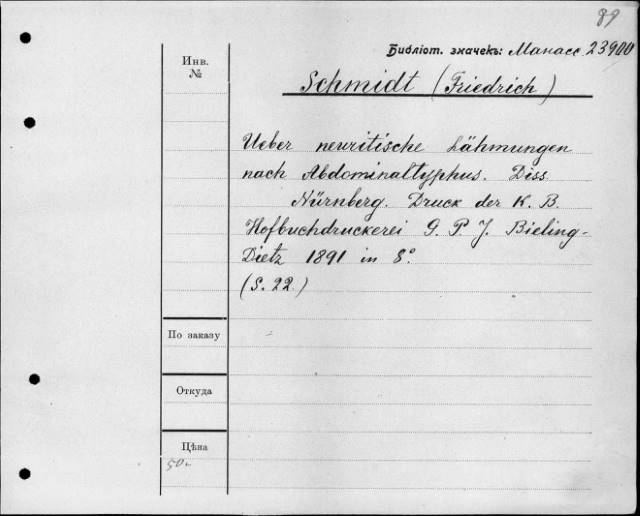 89
Библіот. значекъ: Манасс. 23900
Инв.
№
Schmidt (Friedrich)
Ueber neuritische Lähmungen
nach Abdominaltyphus. Diss.
Nürnberg. Druck der K. B.
Hofbuchdruckerei G. P. J. Bieling-
Dietz 1891 in 8°
(S. 22)
По заказу
Откуда
Цѣна
50